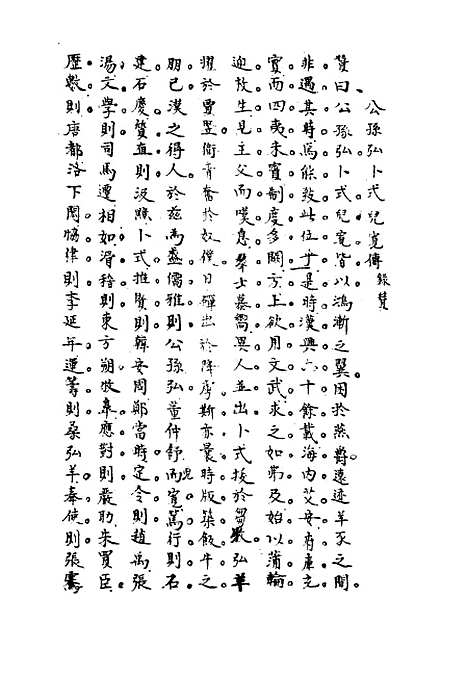 公孫弘卜式兒寬傳 錄贊
贊曰公孫弘卜式兒寬皆以鴻漸之翼困於燕爵。遠迹羊豕之間。
非遇其時焉能致此位乎。是時漢興六十餘載海內艾安府庫充
實而四夷未賓制度多闕。方上欲用文武求之如弗及。始以蒲輪
迎枚生見主父而嘆息。羣士慕嚮異人並出。卜式拔於芻牧。弘羊
擢於賈豎。衛青奮於奴僕。日磾出於降虜。斯亦曩時版築飯牛之
朋已。漢之得人於茲為盛。儒雅則公孫弘董仲舒兒寬。篤行則石
建石慶。質直則汲黯卜式。推賢則韓安國鄭當時。定令則趙禹張
湯。文學則司馬遷相如。滑稽則東方朔枚皋。應對則嚴助朱買臣。
歷數則唐都洛下閎。協律則李延年。運籌則桑弘羊。奉使則張騫